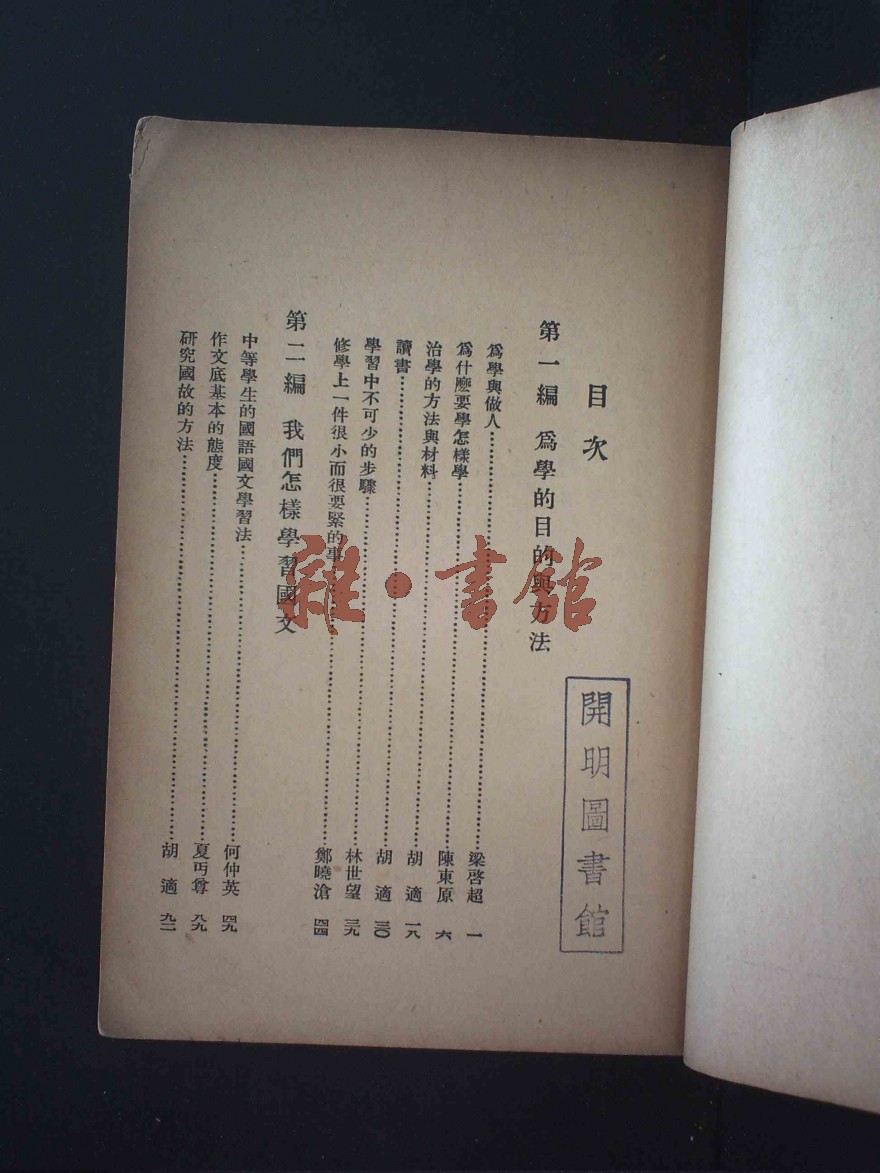 目次
第一編 爲學的目的與方法
爲學與做人⋯⋯⋯⋯梁啓超 一
爲什麽要學怎樣學⋯⋯⋯⋯陳東原 六
治學的方法與材料⋯⋯⋯⋯胡適 一八
讀書⋯⋯⋯⋯胡適 三〇
學習中不可少的步驟⋯⋯⋯⋯林世望 三九
修學上一件很小而很要緊的事⋯⋯⋯⋯鄭曉滄 四四
第二編 我們怎樣學習國文
中等學生的國語國文學習法⋯⋯⋯⋯何仲英 四九
作文底基本的態度⋯⋯⋯⋯夏丏尊 八九
研究國故的方法⋯⋯⋯⋯胡適 九二
開明圖書館
雜·書館